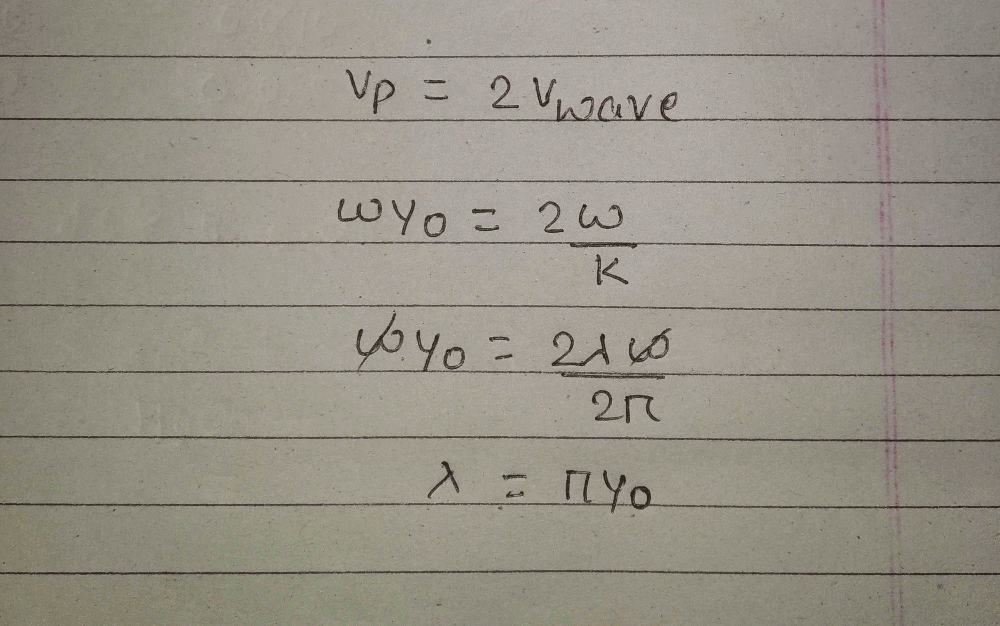 Vp = 2 Vwave
ωy₀ = 2ω/K
ωy₀ = 2λω/2π
λ = πy₀